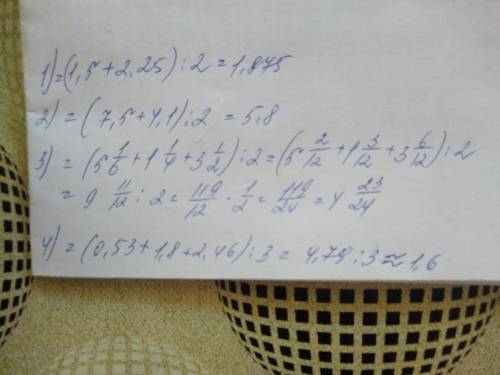 1) = (1,5 + 2,25) : 2 = 1,875
2) = (7,5 + 4,1) : 2 = 5,8
3) = (5 1/6 + 1 1/4 + 3 1/2) : 2 = (5 2/12 + 1 3/12 + 3 6/12) : 2
= 9 11/12 : 2 = 119/12 · 1/2 = 119/24 = 4 23/24
4) = (0,53 + 1,8 + 2,46) : 3 = 4,79 : 3 ≈ 1,6